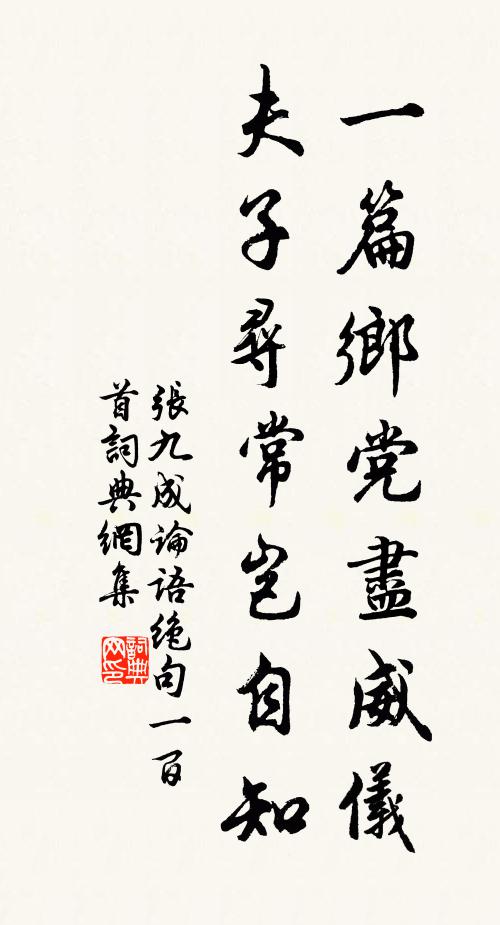 一篇鄉党盡威儀
夫子尋常豈自知
張九成論語絶句一百
首詞典網集
詞典
网印